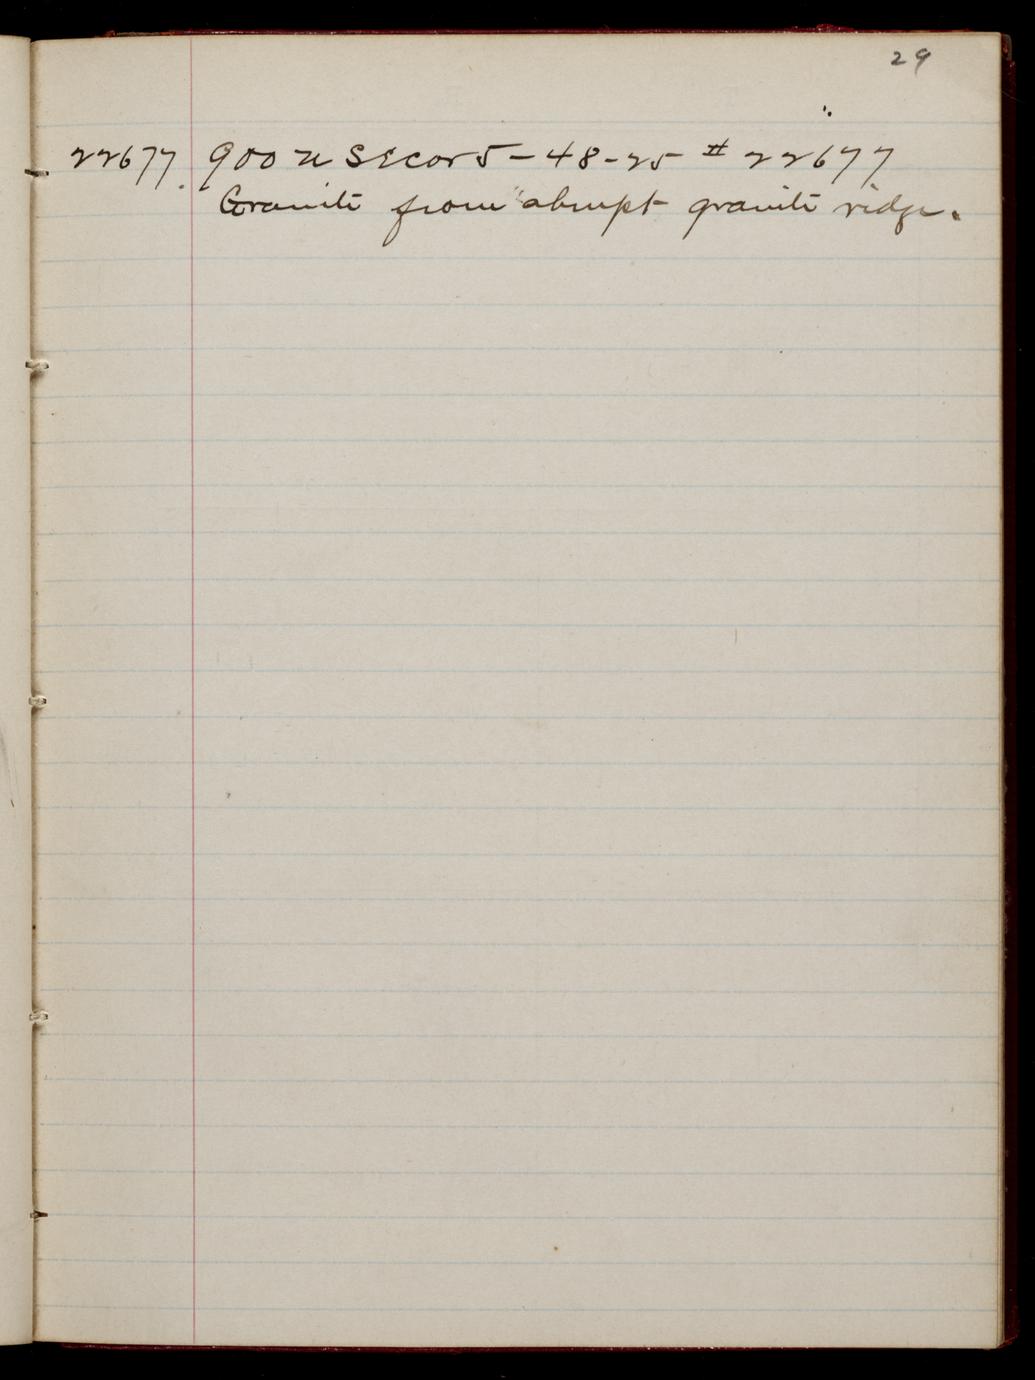 29
22677. 900 N SE cor 5-48-25 # 22677
Granite from abrupt granite ridge.